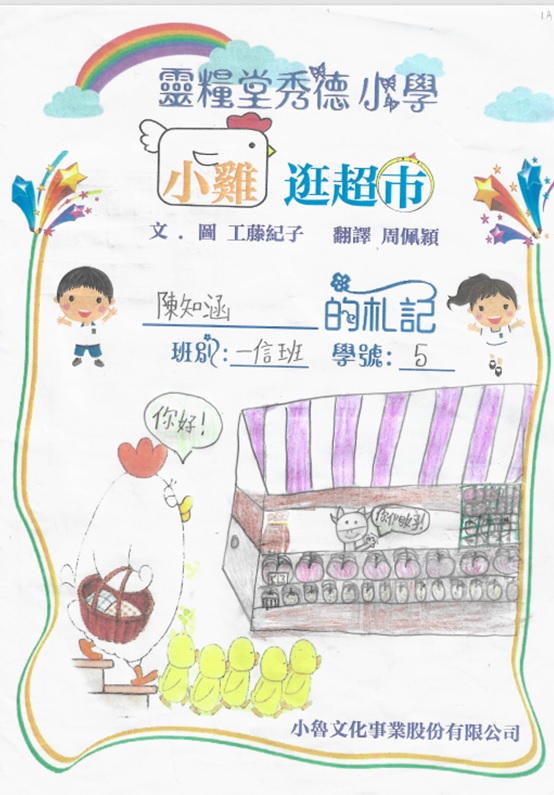 1A
靈糧堂秀德小學
小雞逛超市
文．圖 工藤紀子 翻譯 周佩穎
陳知涵 的札記
班別：一信班 學號：5
你好！
小魯文化事業股份有限公司